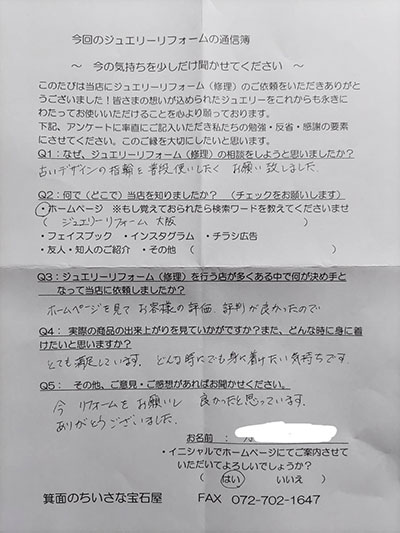 今回のジュエリーリフォームの通信簿
～ 今の気持ちを少しだけ聞かせてください ～
このたびは当店にジュエリーリフォーム（修理）のご依頼をいただきありがと
うございました！皆さまの想いが込められたジュエリーをこれからも永きに
わたってお使いいただけることを心より願っております。
下記、アンケートに率直にご記入いただき私たちの勉強・反省・感謝の要素
にさせてください。このご縁を大切にしたいと思います。
Q1：なぜ、ジュエリーリフォーム（修理）の相談をしようと思いましたか？
古いデザインの指輪を普段使いしたく お願い致しました.
Q2：何で（どこで）当店を知りましたか？ （チェックをお願いします）
・ホームページ ※もし覚えておられたら検索ワードを教えてくださいませ
（ ジュエリーリフォーム 大阪 ）
・フェイスブック ・インスタグラム ・チラシ広告
・友人・知人のご紹介 ・その他（ ）
Q3：ジュエリーリフォーム（修理）を行う店が多くある中で何が決め手と
なって当店に依頼しましたか？
ホームページを見て お客様の評価、評判が良かったので
Q4： 実際の商品の出来上がりを見ていかがですか？また、どんな時に身に着
けたいと思いますか？
とても満足しています. どんな時にでも身に着けたい気持ちです.
Q5： その他、ご意見・ご感想があればお聞かせください。
今 リフォームをお願いし 良かったと思っています.
ありがとうございました.
お名前：
・イニシャルでホームページにてご案内させて
いただいてよろしいでしょうか？
（ はい いいえ ）
箕面のちいさな宝石屋 FAX 072-702-1647